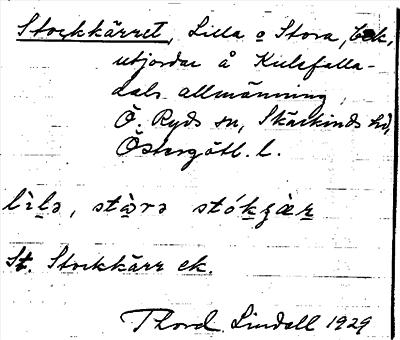 Stockkärret, Lilla o Stora, bek,
utjordar å Kulefalla-
dals allmänning,
Ö. Ryds sn, Skärkinds hd,
Östergötl. l.
lìlə, stòrə stókɟær
St. Stockkärr ek.
Thord Lindell 1929